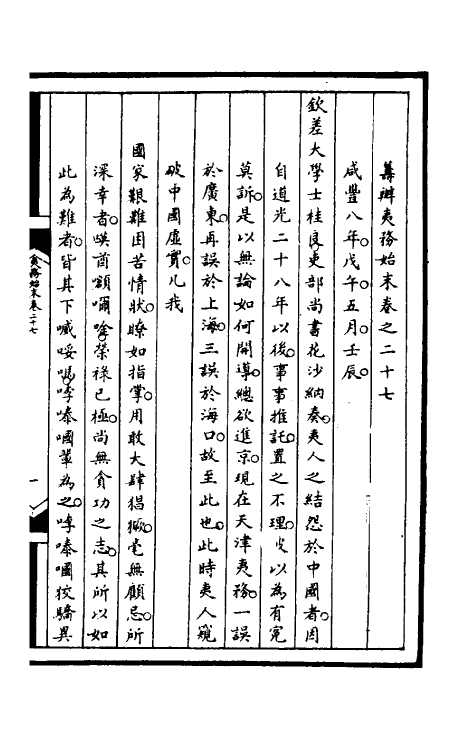 籌辦夷務始末卷之二十七
咸豐八年。戊午。五月。壬辰。
欽差大學士桂良吏部尚書花沙納奏。夷人之結怨於中國者。因
自道光二十八年以後。事事推託。置之不理。皮以為有冤
莫訴。是以無論如何開導。總欲進京。現在天津夷務。一誤
於廣東。再誤於上海。三誤於海口。故至此也。此時夷人窺
破中國虛實。凡我
國家艱難困苦情狀。瞭如指掌。用敢大肆猖獗。毫無顧忌。所
深幸者。𠸄酋額嘞唫。榮祿已極。尚無貪功之志。其所以如
此為難者。皆其下嘁㖿嗎。哱嗪嘓輩為之。哱嗪嘓狡驕異
夷務始末卷二十七
一